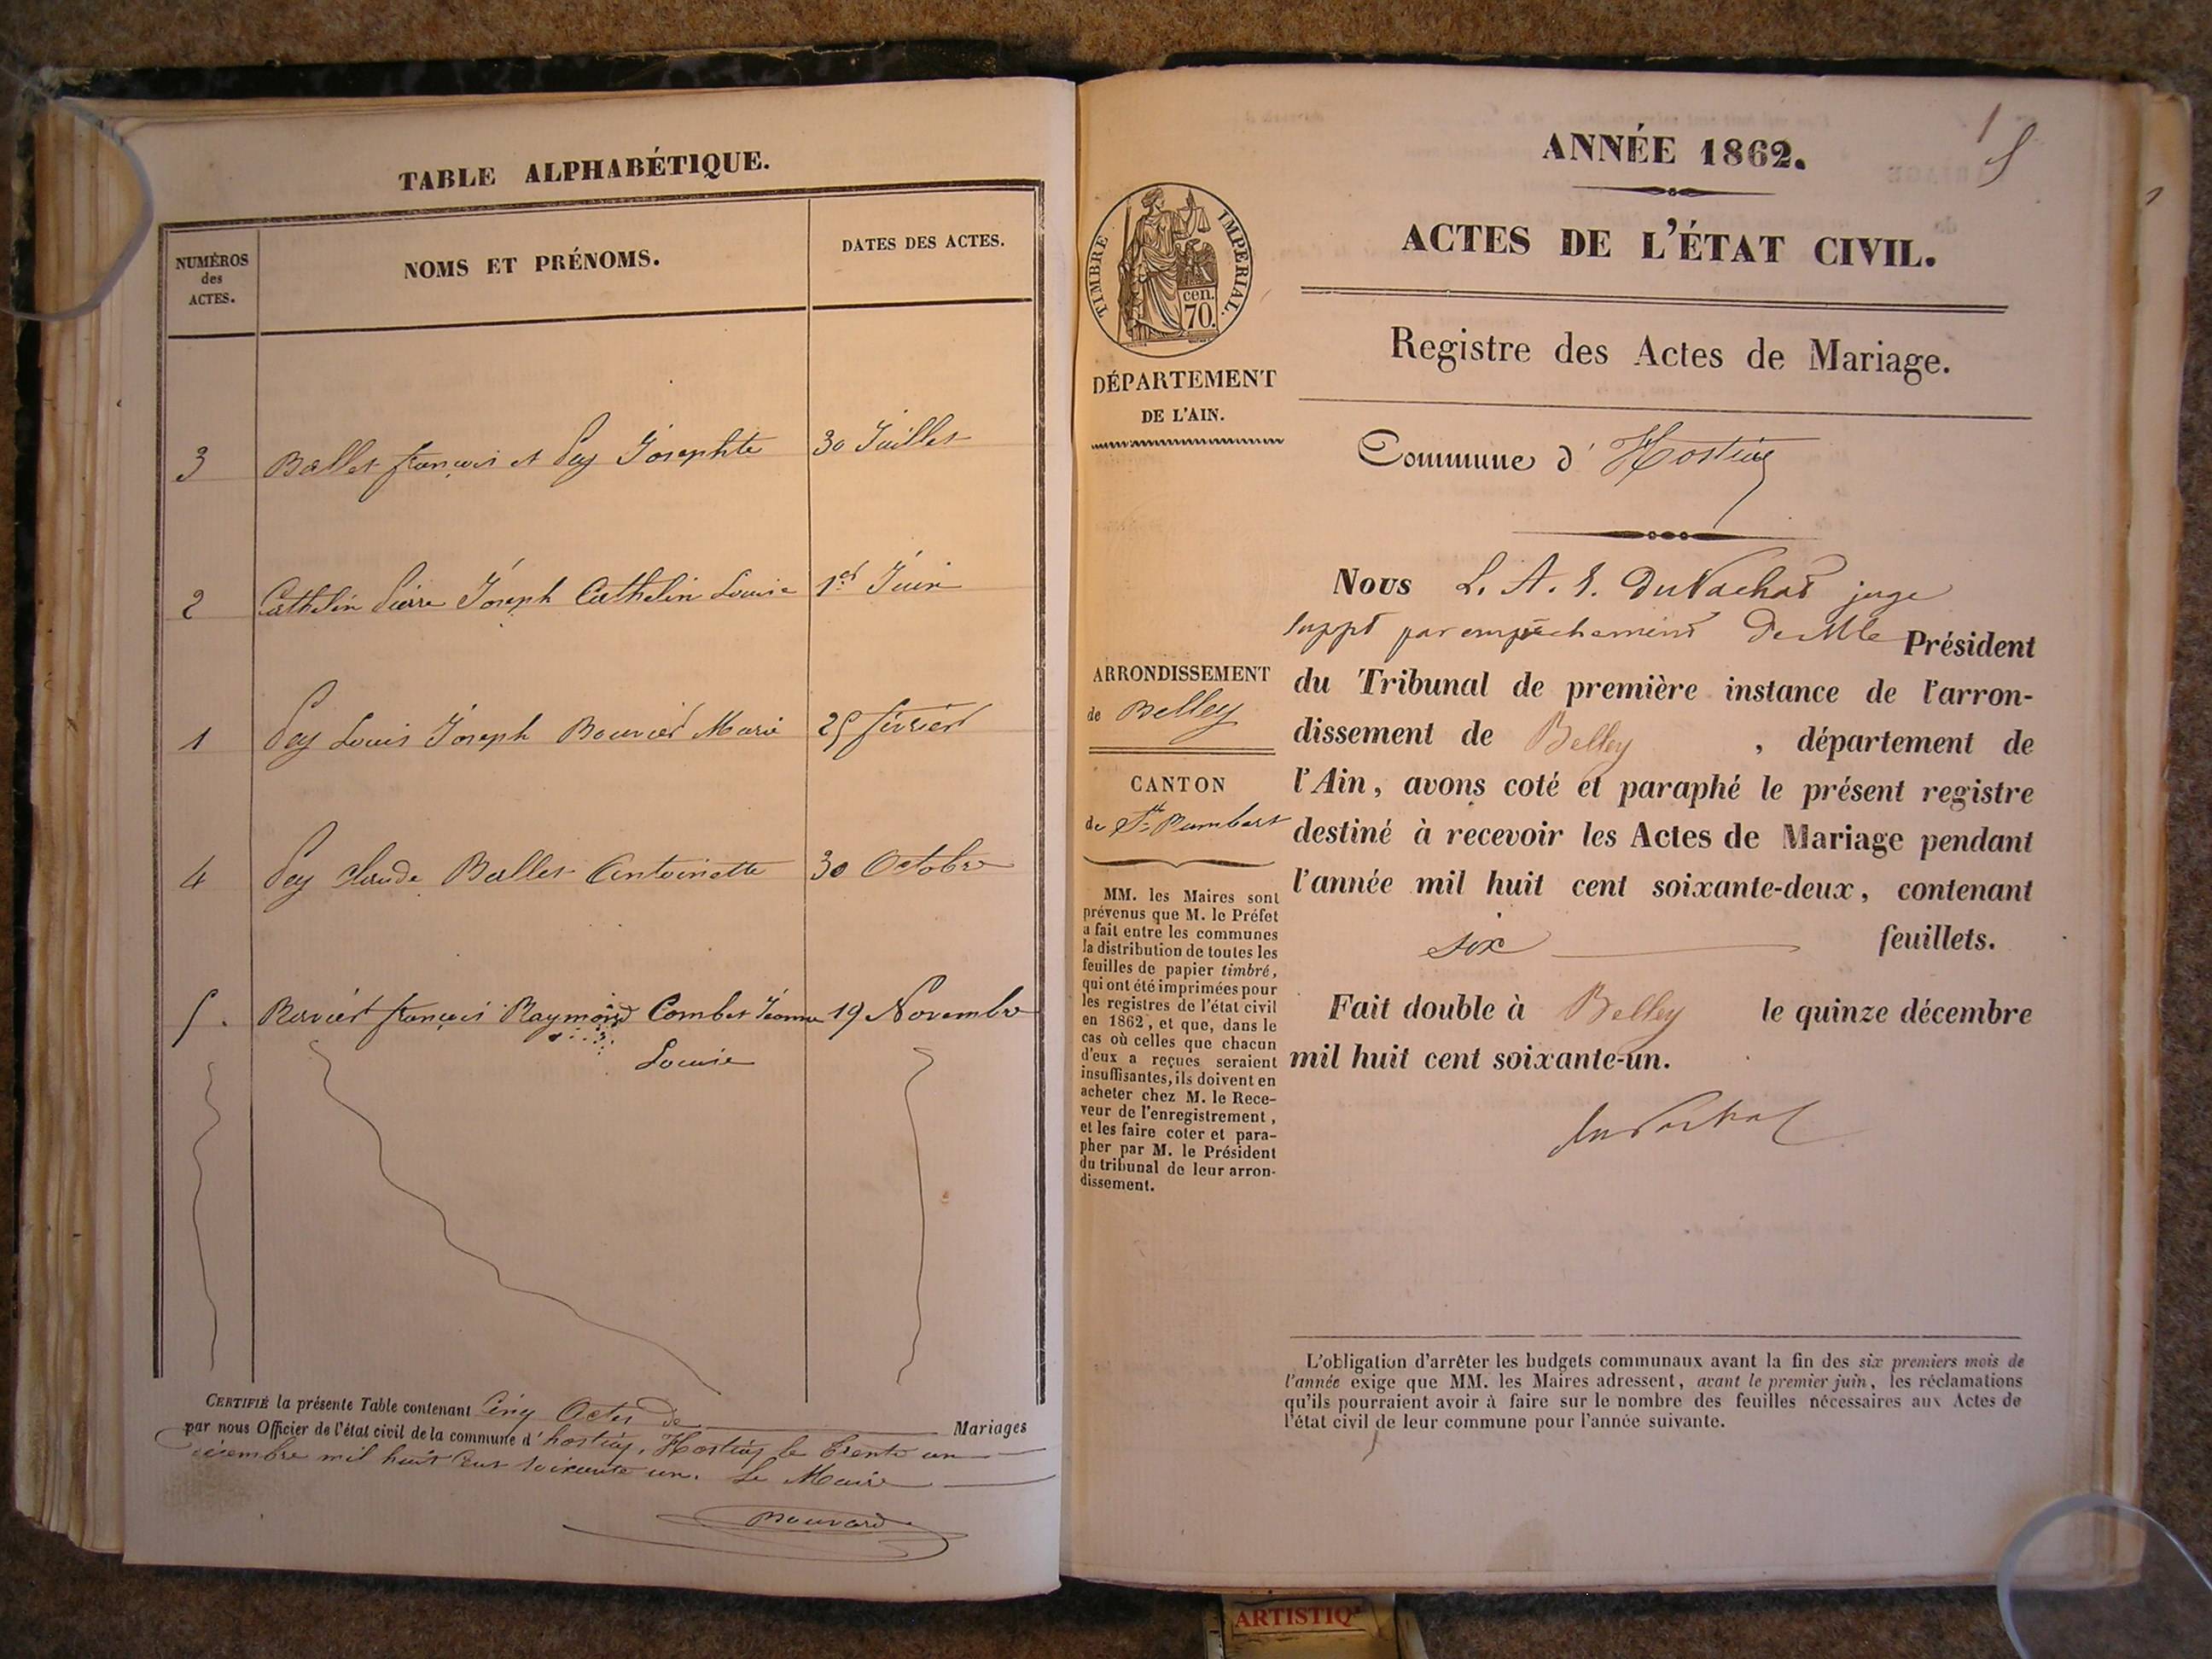 TABLE ALPHABÉTIQUE.
NUMÉROS
des
ACTES.
NOMS ET PRÉNOMS.
DATES DES ACTES.
3 Ballet françois et Pey Josephte 30 Juillet
2 Cathelin Pierre Joseph Cathelin Louise 1er Juin
1 Pey Louis Joseph Bouvier Marie 25 février
4 Pey Claude Ballet Antoinette 30 Octobre
5. françois Raymond Combet Jeanne 19 Novembre
Louise
CERTIFIÉ la présente Table contenant Cinq Actes de Mariages
par nous Officier de l'état civil de la commune d'hostiaz, Hostiaz le trente un
décembre mil huit Cent soixante un. Le Maire
Bouvard
1
ANNÉE 1862.
ACTES DE L'ÉTAT CIVIL.
TIMBRE IMPÉRIAL.
cen.
70.
DÉPARTEMENT
DE L'AIN.
Registre des Actes de Mariage.
Commune d' Hostiaz
Nous L. A. DuVachat juge
suppt par empêchement de Mr le Président
du Tribunal de première instance de l'arron-
dissement de Belley , département de
l'Ain, avons coté et paraphé le présent registre
destiné à recevoir les Actes de Mariage pendant
l'année mil huit cent soixante-deux, contenant
six feuillets.
Fait double à Belley le quinze décembre
mil huit cent soixante-un.
duVachat
ARRONDISSEMENT
de Belley
CANTON
de St Rambert
MM. les Maires sont
prévenus que M. le Préfet
a fait entre les communes
la distribution de toutes les
feuilles de papier timbré,
qui ont été imprimées pour
les registres de l'état civil
en 1862, et que, dans le
cas où celles que chacun
d'eux a reçues seraient
insuffisantes, ils doivent en
acheter chez M. le Rece-
veur de l'enregistrement,
et les faire coter et para-
pher par M. le Président
du tribunal de leur arron-
dissement.
L'obligation d'arrêter les budgets communaux avant la fin des six premiers mois de
l'année exige que MM. les Maires adressent, avant le premier juin, les réclamations
qu'ils pourraient avoir à faire sur le nombre des feuilles nécessaires aux Actes de
l'état civil de leur commune pour l'année suivante.
ARTISTIQ